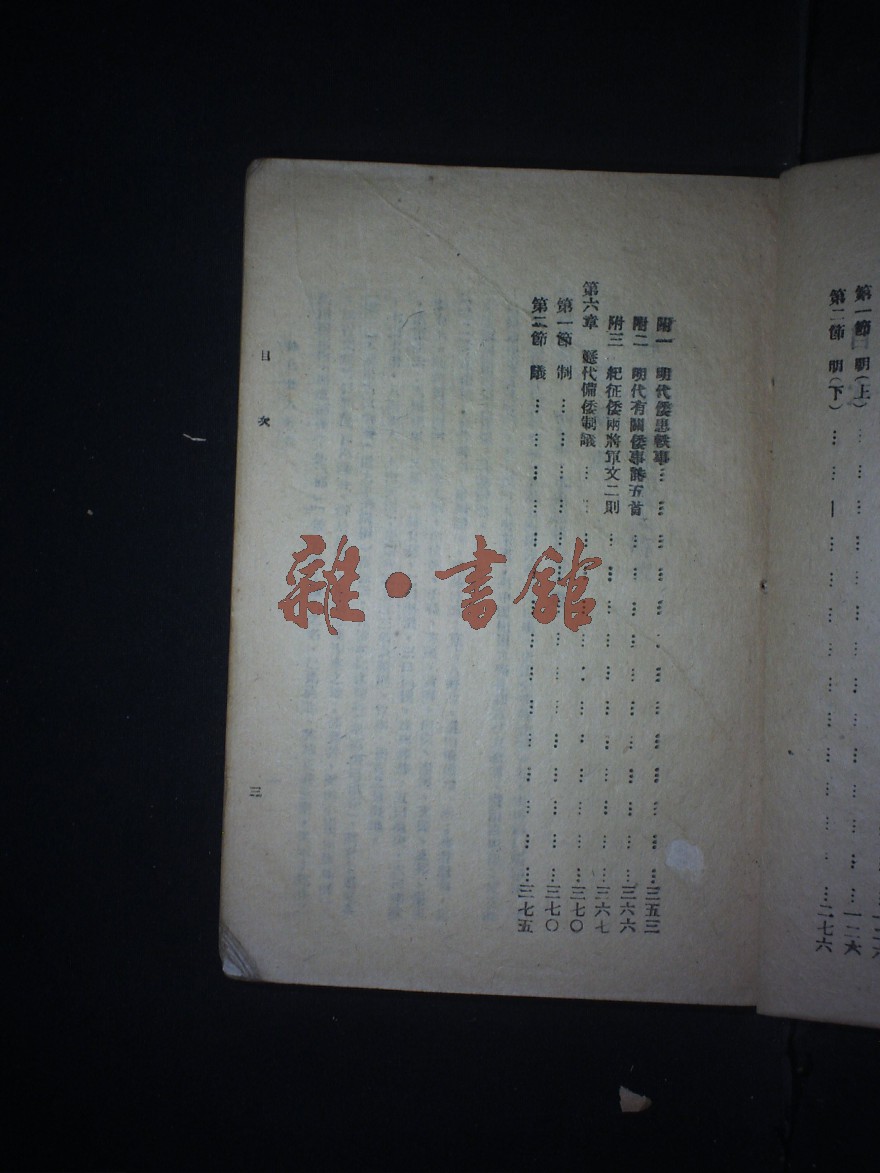 第一節 明(上)……一二六
第二節 明(下)……二七六
附一 明代倭患軼事……三五三
附二 明代有關倭事詩五首……三六六
附三 紀征倭兩將軍文二則……三六七
第六章 歷代備倭制議……三七〇
第一節 制……三七〇
第二節 議……三七五
目次
三
雜·書館